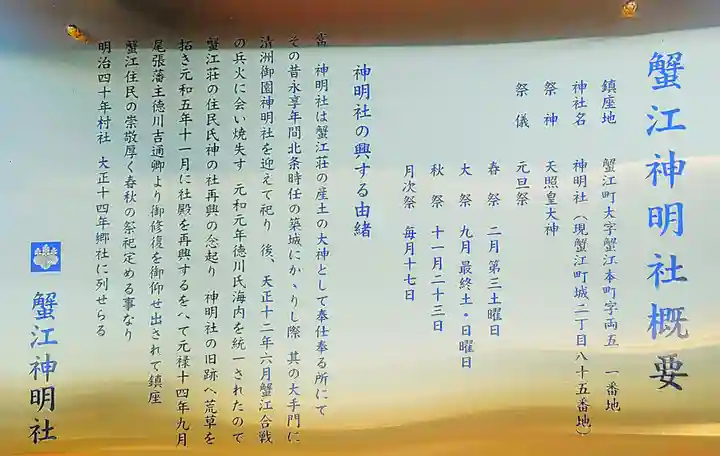 蟹江神明社概要
鎮座地 蟹江町大字蟹江本町字両五 一番地
神社名 神明社(現蟹江町城二丁目八十五番地)
祭神 天照皇大神
祭儀 元旦祭
春祭 二月第三土曜日
大祭 九月最終土・日曜日
秋祭 十一月二十三日
月次祭 毎月十七日
神明社の興する由緒
当 神明社は蟹江荘の産土の大神として奉仕奉る所にて
その昔永享年間北条時任の築城にかゝりし際 其の大手門に
清洲御園神明社を迎えて祀り 後、天正十二年六月蟹江合戦
の兵火に会い焼失す 元和元年徳川氏海内を統一されたので
蟹江荘の住民氏神の社再興の念起り 神明社の旧跡へ荒草を
拓き元和五年十一月に社殿を再興するをへて元禄十四年九月
尾張藩主徳川吉通卿より御修復を御仰せ出されて鎮座
蟹江住民の崇敬厚く春秋の祭祀定める事なり
明治四十年村社 大正十四年郷社に列せらる
蟹江神明社